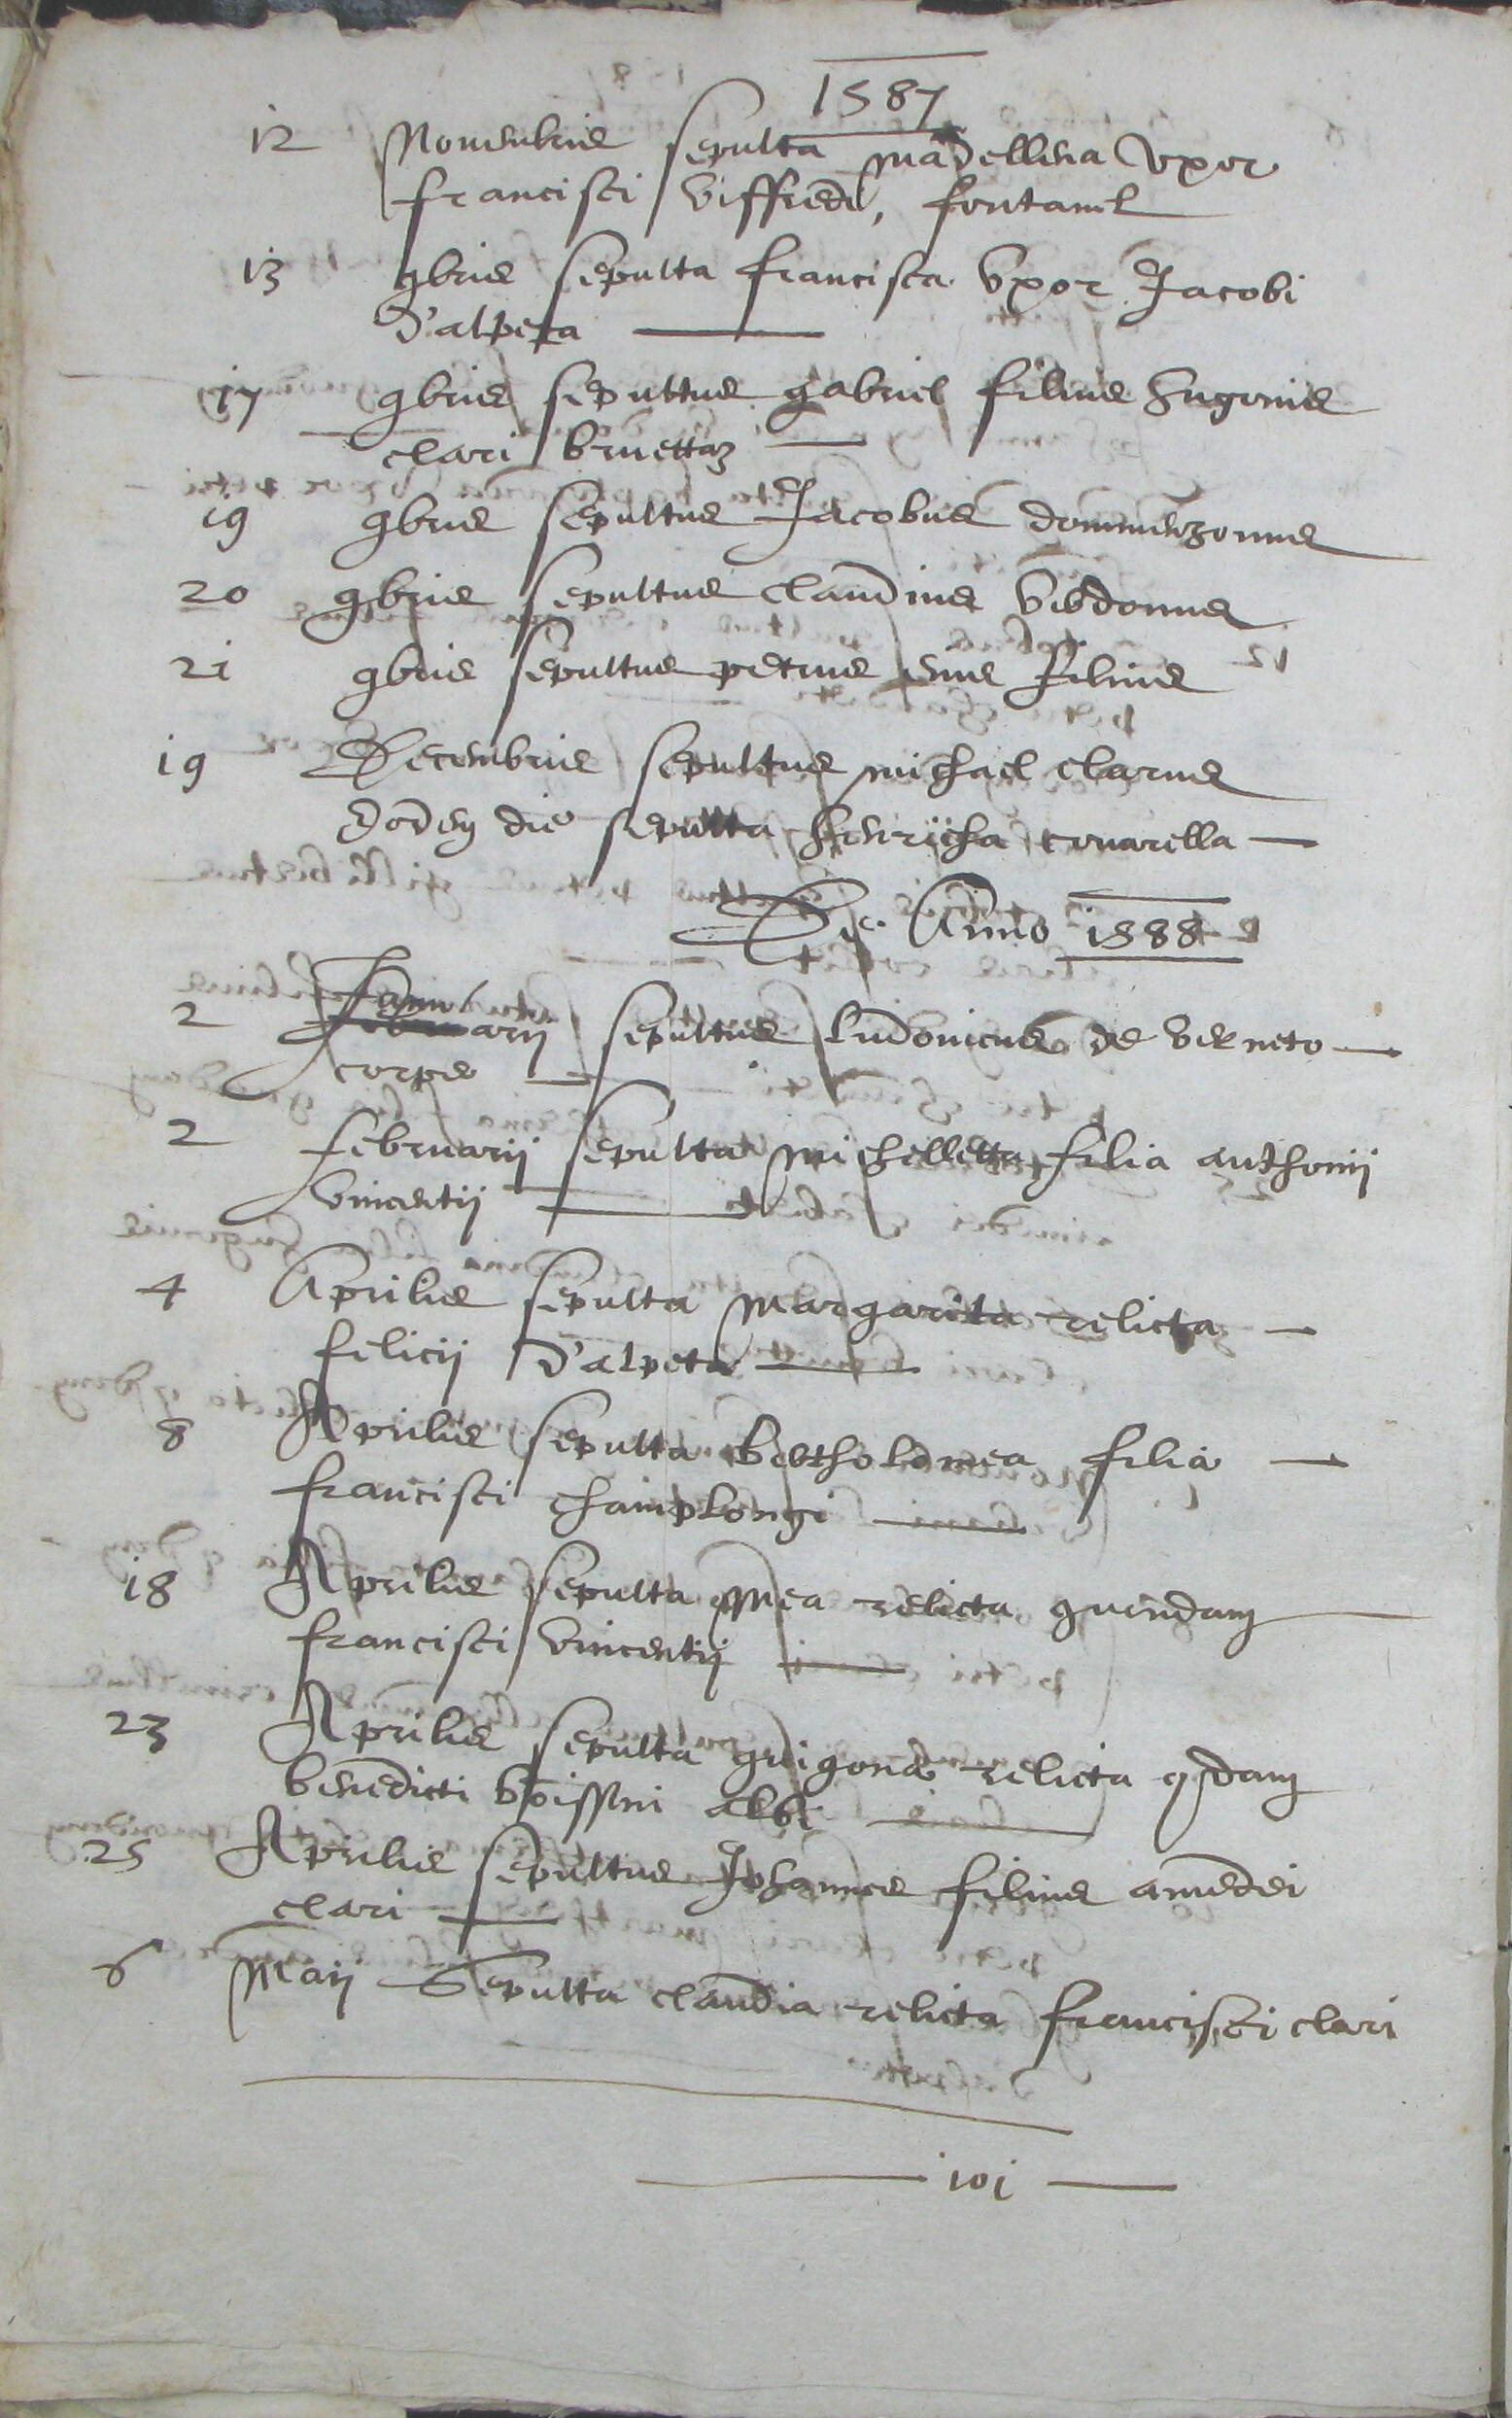 1587
12 Novembris sepulta madellena Vxor
francisci Viffredi, fontanil
13 9bris sepulta francisca Vxor Jacobi
d'alpeta
17 9bris sepultus gabriel filius hugonis
clari bruettaz
19 9bris sepultus Jacobus dommenzonus
20 9bris sepultus claudius Verdonus
21 9bris sepultus petrus eius filius
19 Decembris sepultus michael clarus
Eodem die sepulta henricha covarella
De Anno 1588
2 Januarii sepultus ludovicus de verneto
corps
2 februarii sepulta michelletta filia anthonii
Vincentii
4 Aprilis sepulta margarita relicta
felicii d'alpeta
8 Aprilis sepulta bertholomea filia
francisci champlongi
18 Aprilis sepulta mea relicta quondam
francisci Vincentii
23 Aprilis sepulta guigona relicta qdam
benedicti boissoni albi
25 Aprilis sepultus Johannes filius amedei
clari
6 Maii Sepulta claudia relicta francisci clari
101